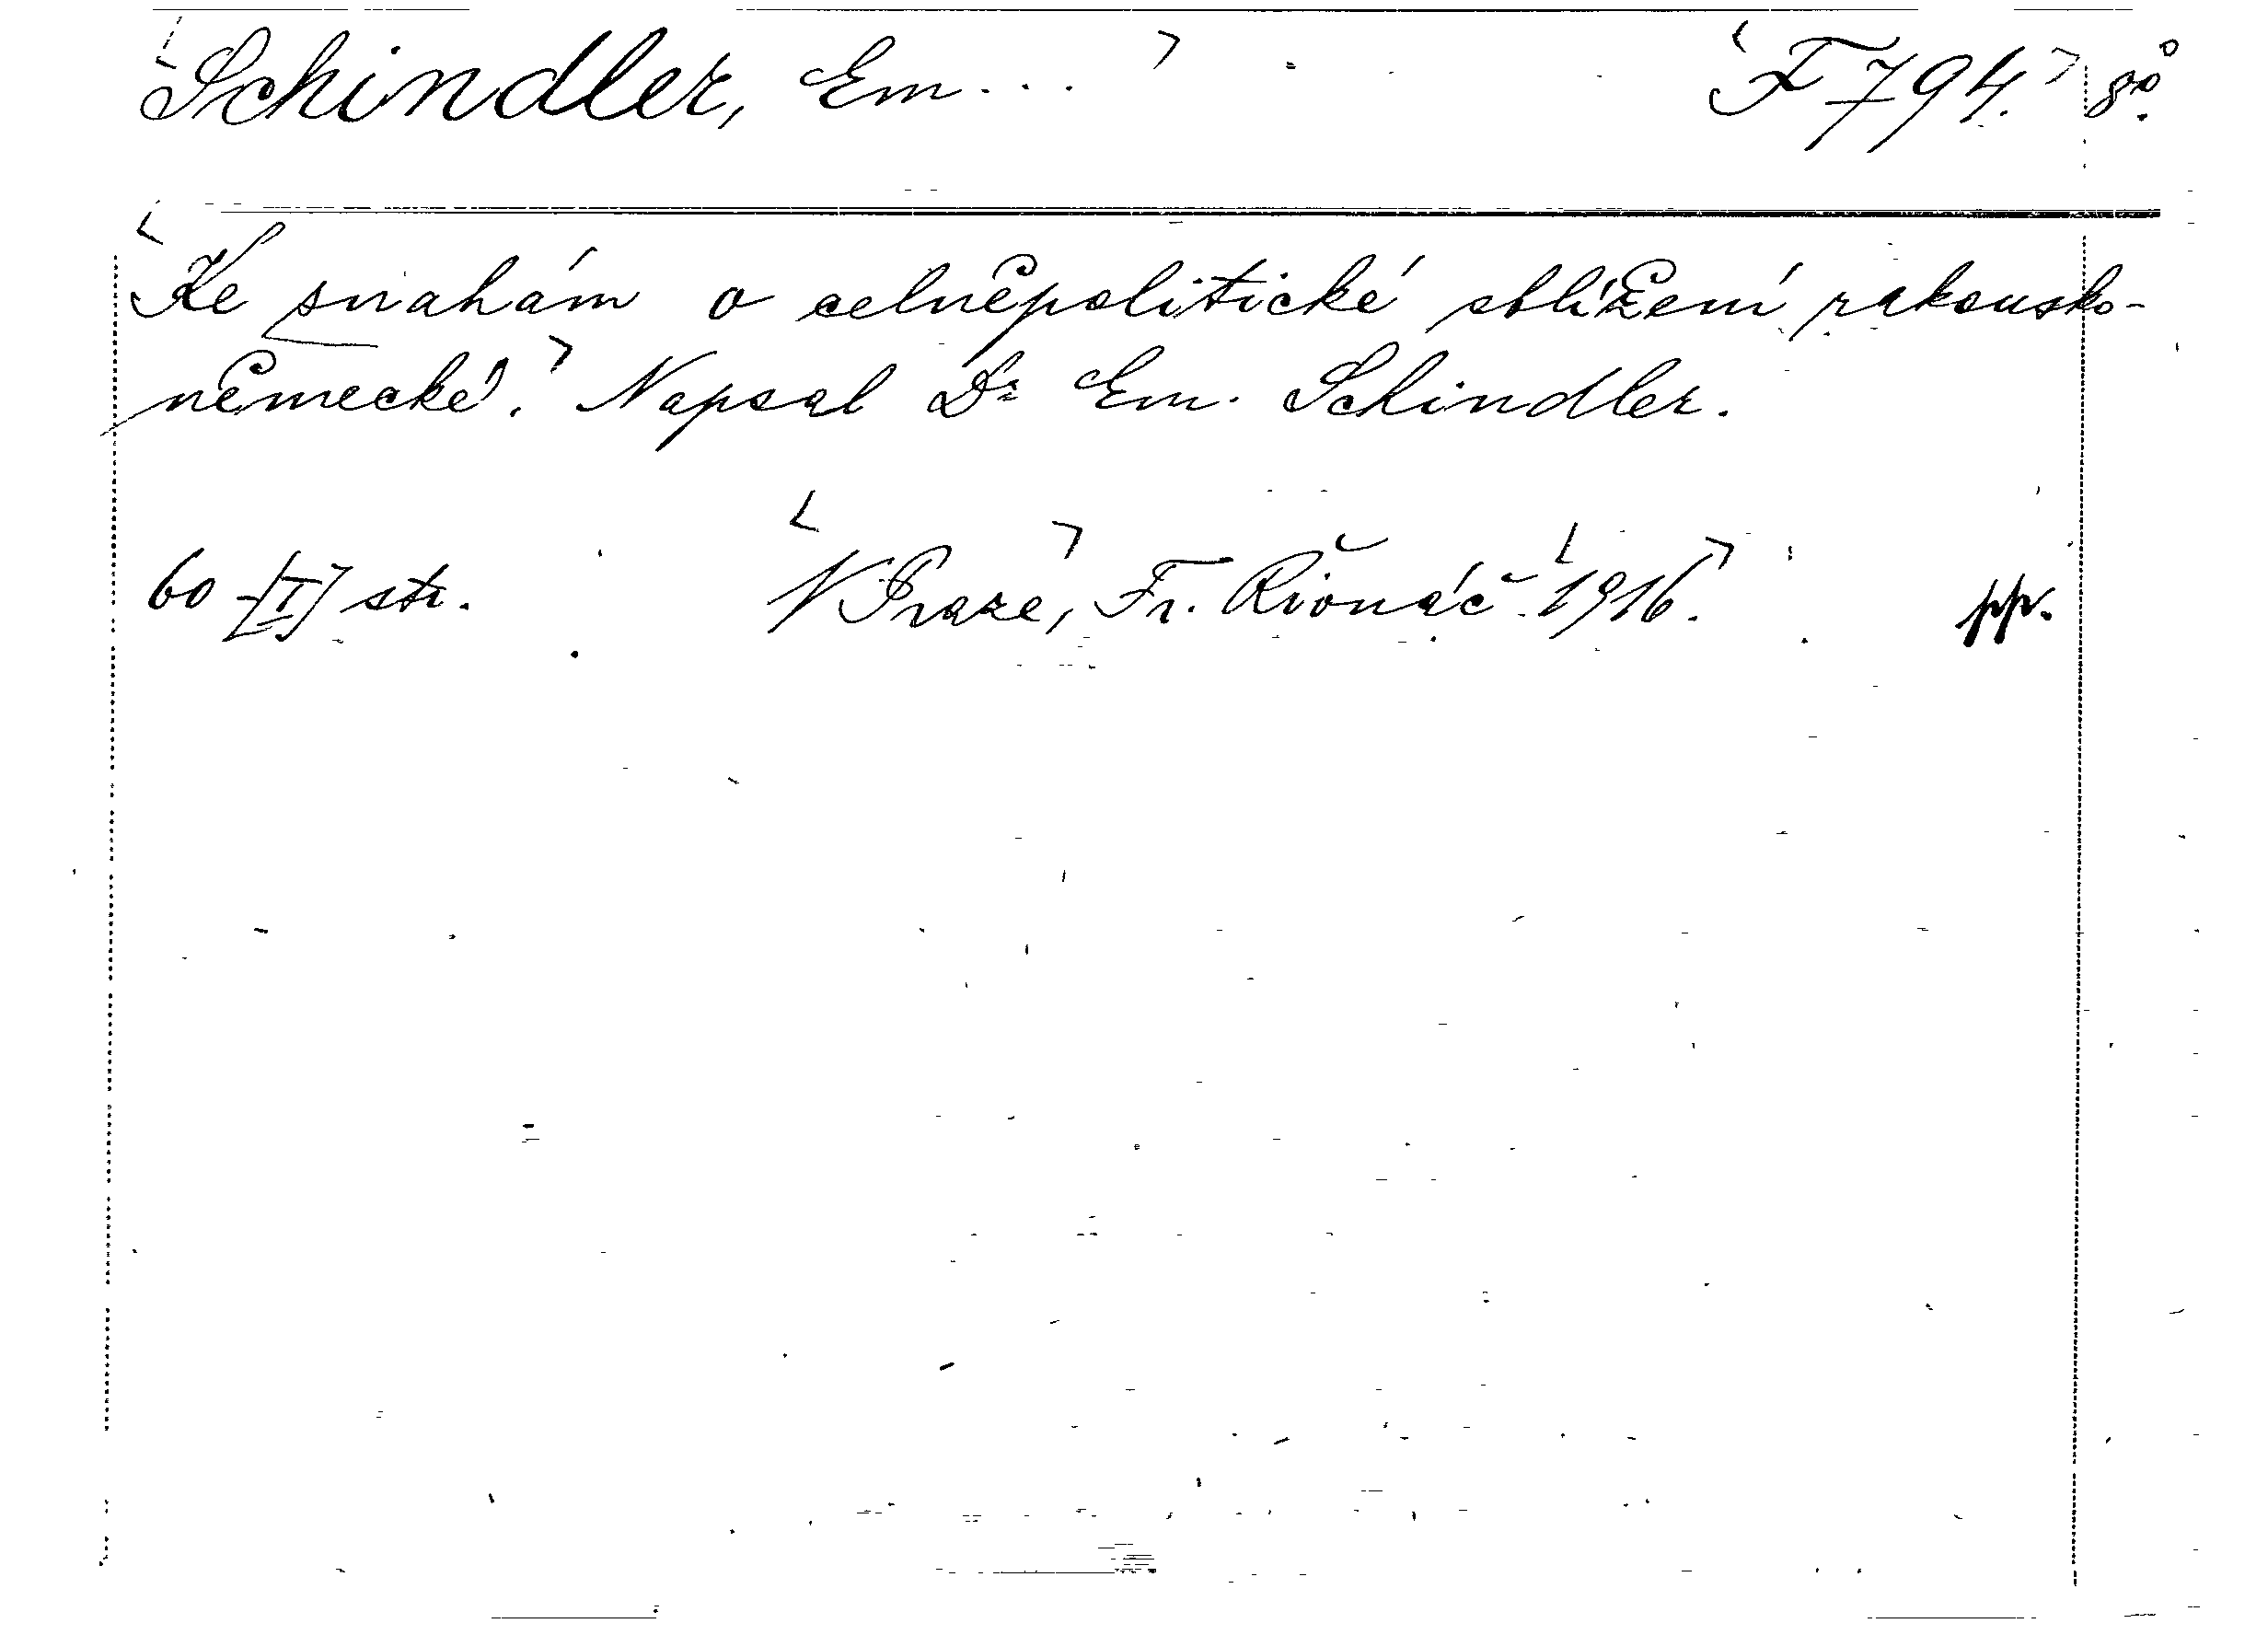 Schindler, Em... F 794. 8°.
Ke snahám o celněpolitické sblížení rakousko-
německé. Napsal Dr Em. Schindler.
60 -[I] str. V Praze, Fr. Řivnáč 1916. pp.